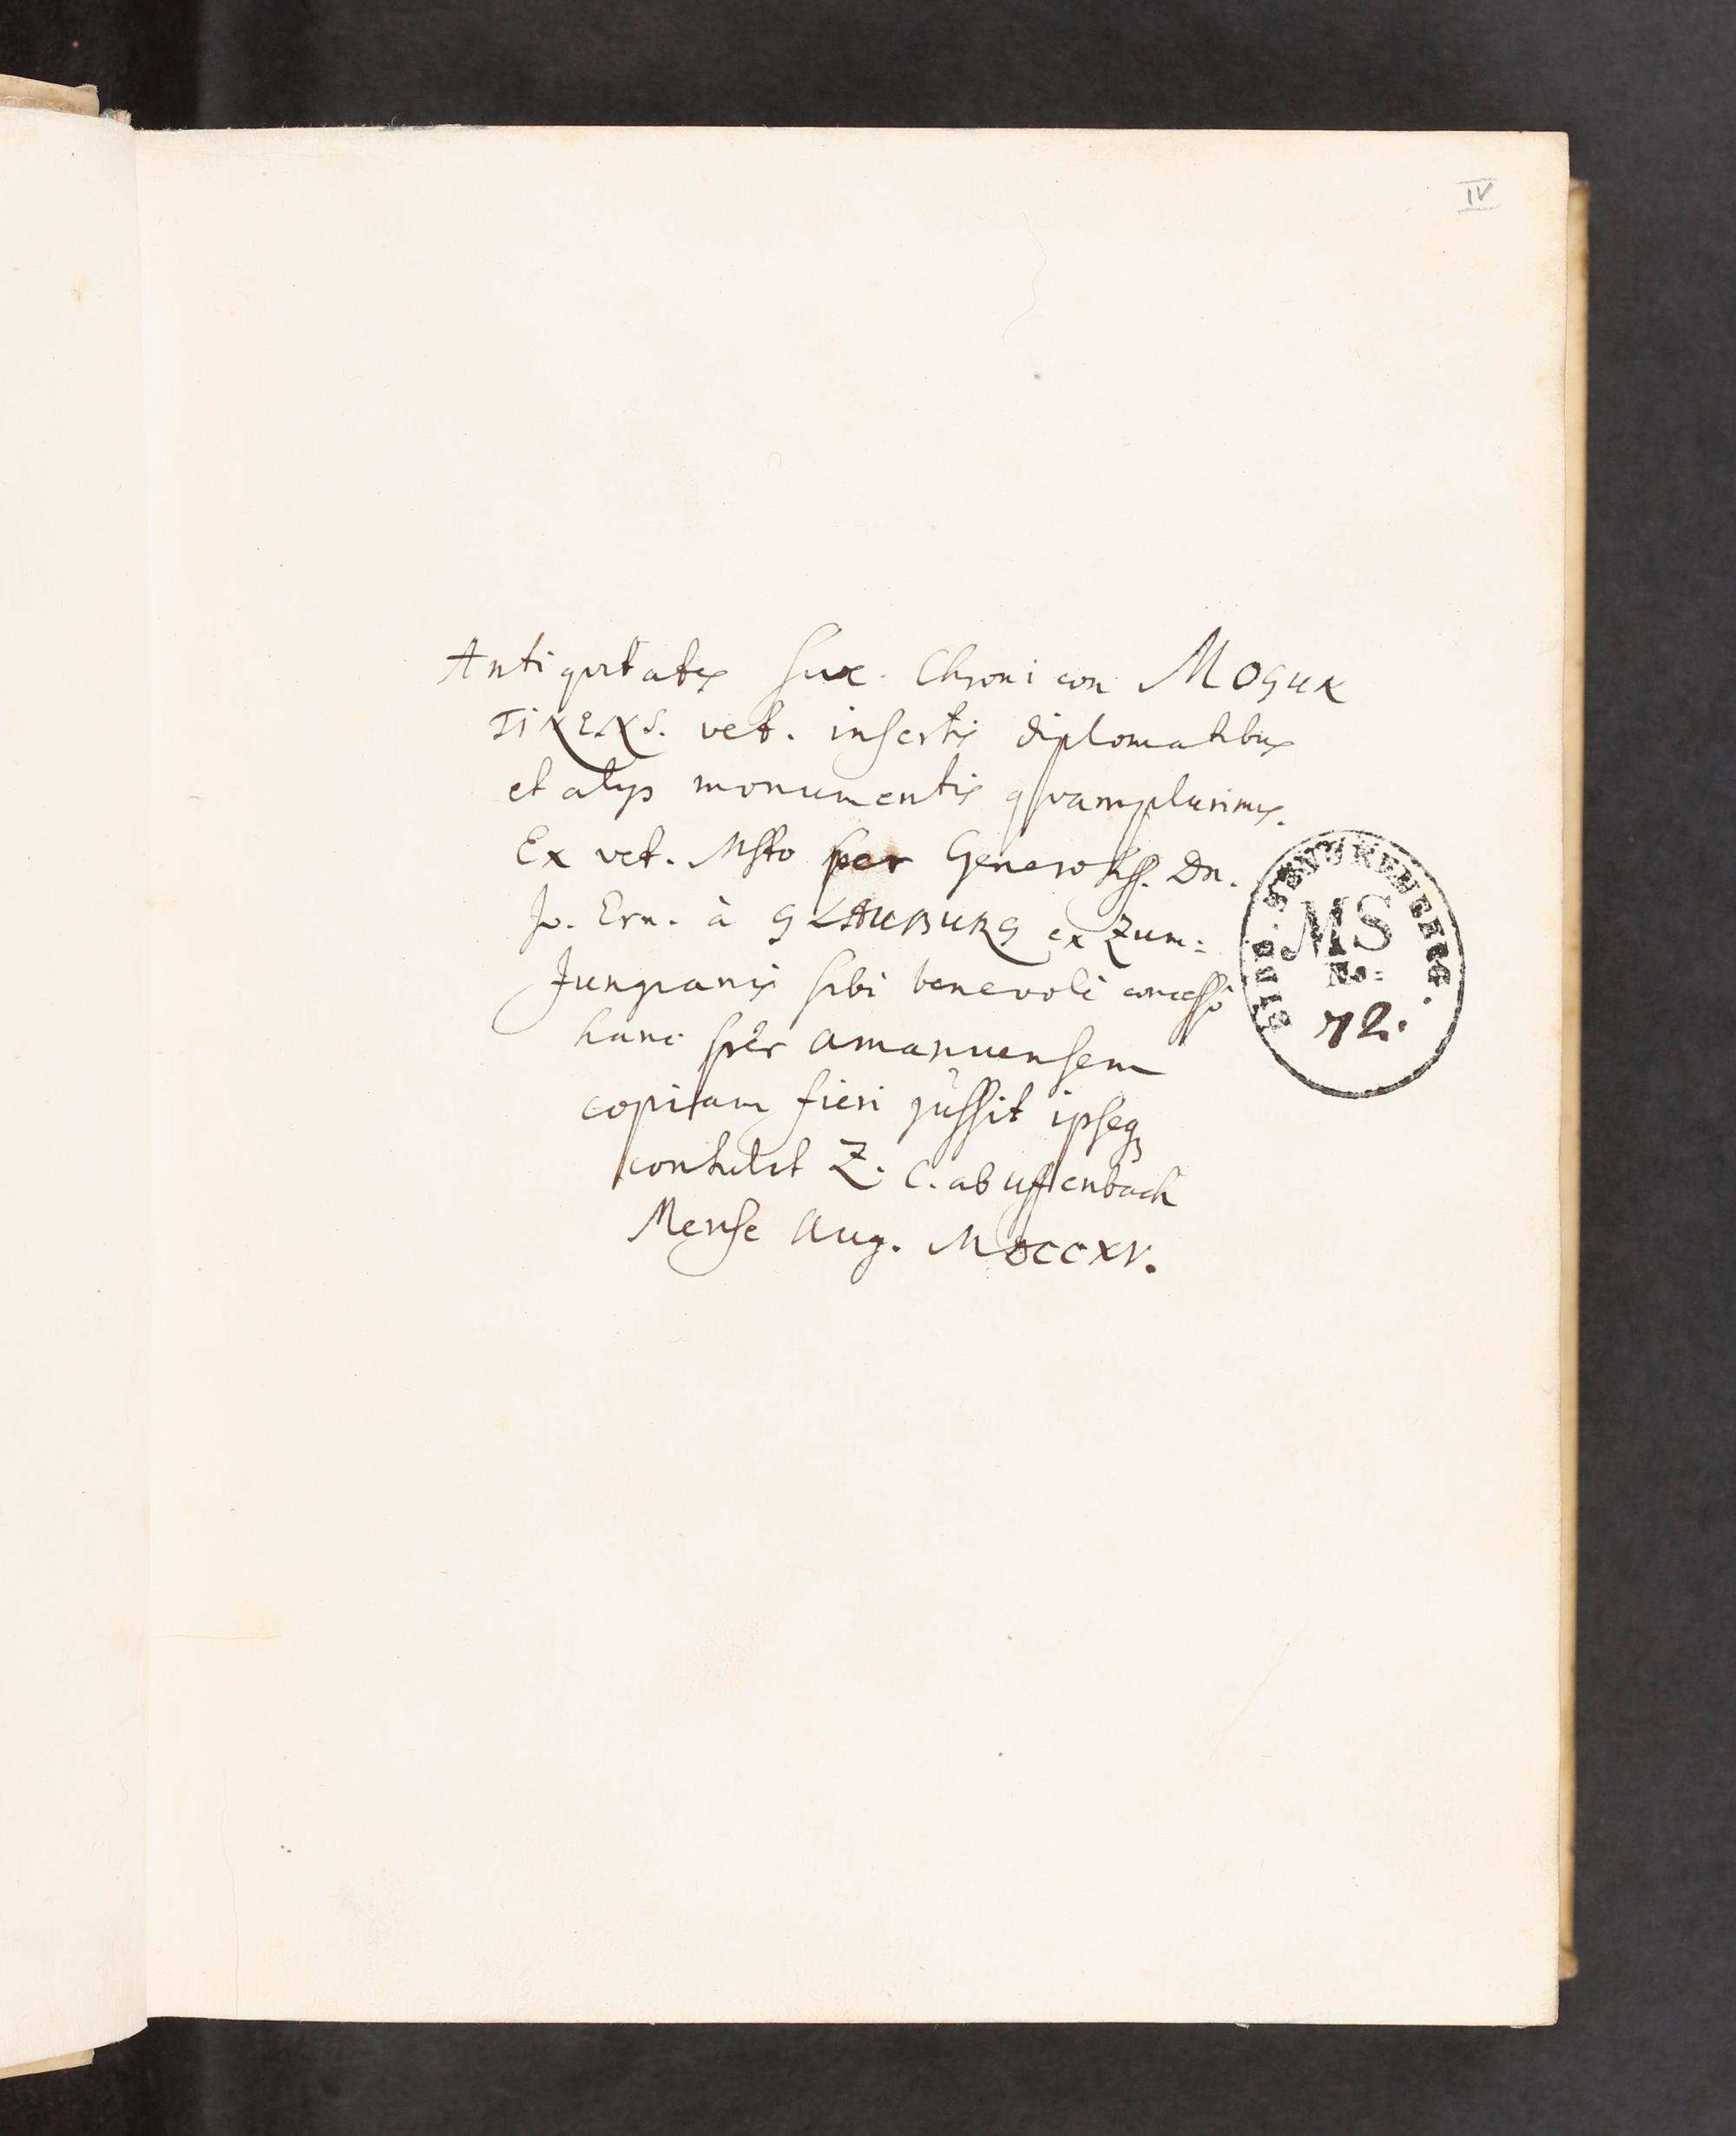 IV
Antiquitates sive Chronicon MOGUN
TINENS. vet. insertis diplomatibus
et alijs monumentis qvamplurimis.
Ex vet. Msto per Generosiss. Dn.
Jo. Ern. à GLAUBURG ex Zum=
Jungianis sibi benevole concesso
hanc per amanuensem
copiam fieri jussit ipseq
contulit Z. C. ab Uffenbach
Mense Aug. MDCCXV.
BIBL. SENCKENBERG.
MS
No.
72.